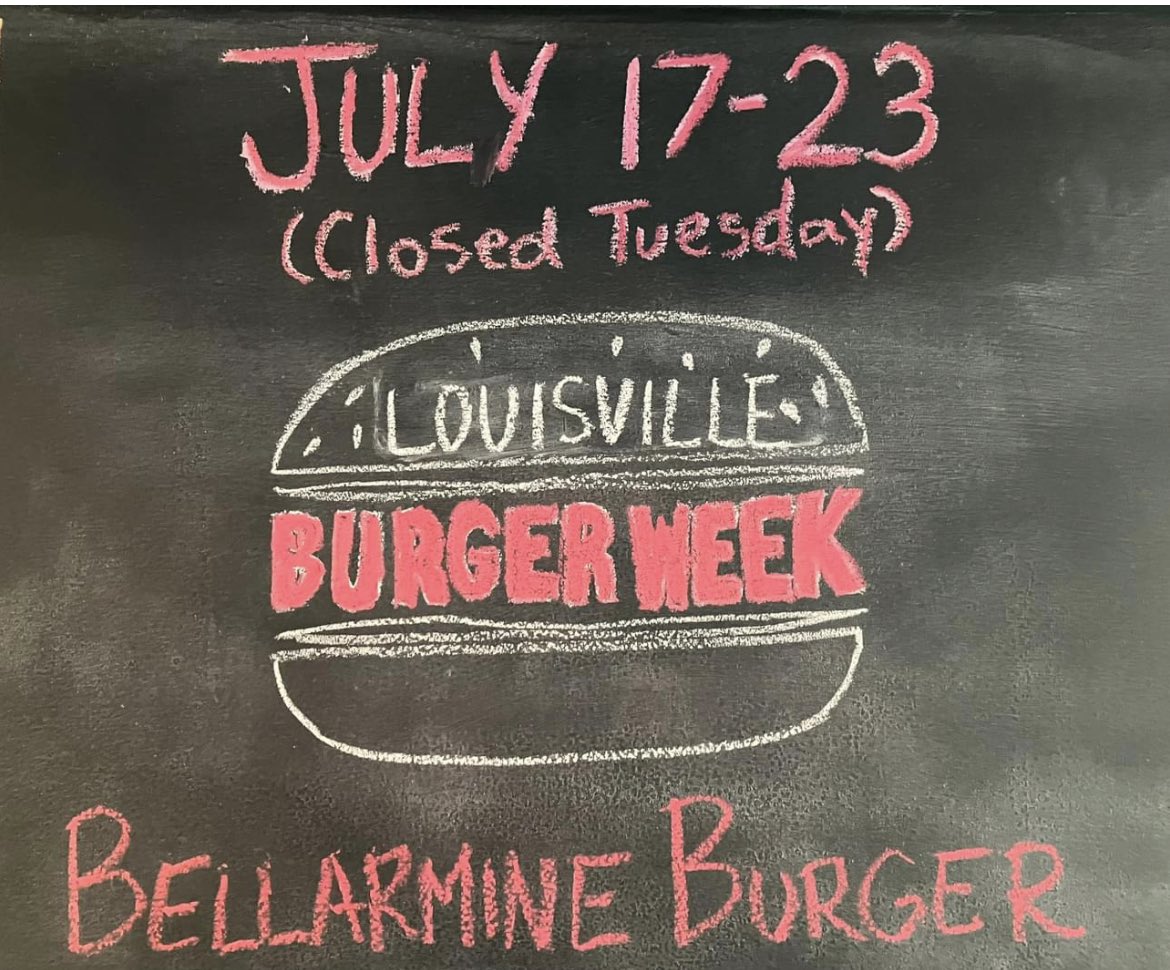 JULY 17-23
(Closed Tuesday)
LOUISVILLE
BURGER WEEK
BELLARMINE BURGER